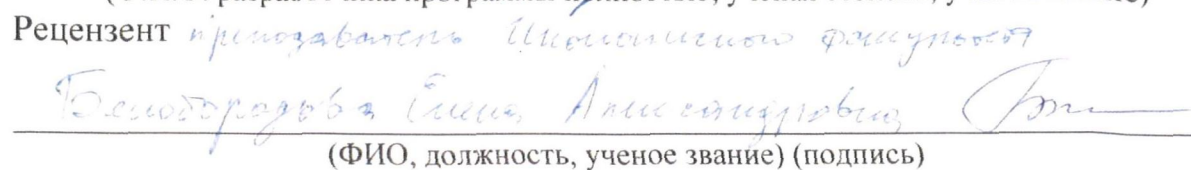 Рецензент преподаватель Экономического факультета
Белобородова Елена Александровна
(ФИО, должность, ученое звание) (подпись)